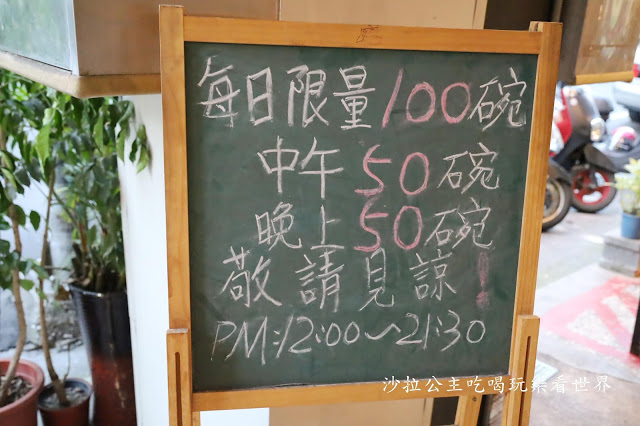 每日限量100碗
中午50碗
晚上50碗
敬請見諒!
PM:12:00~21:30
沙拉公主吃喝玩樂看世界